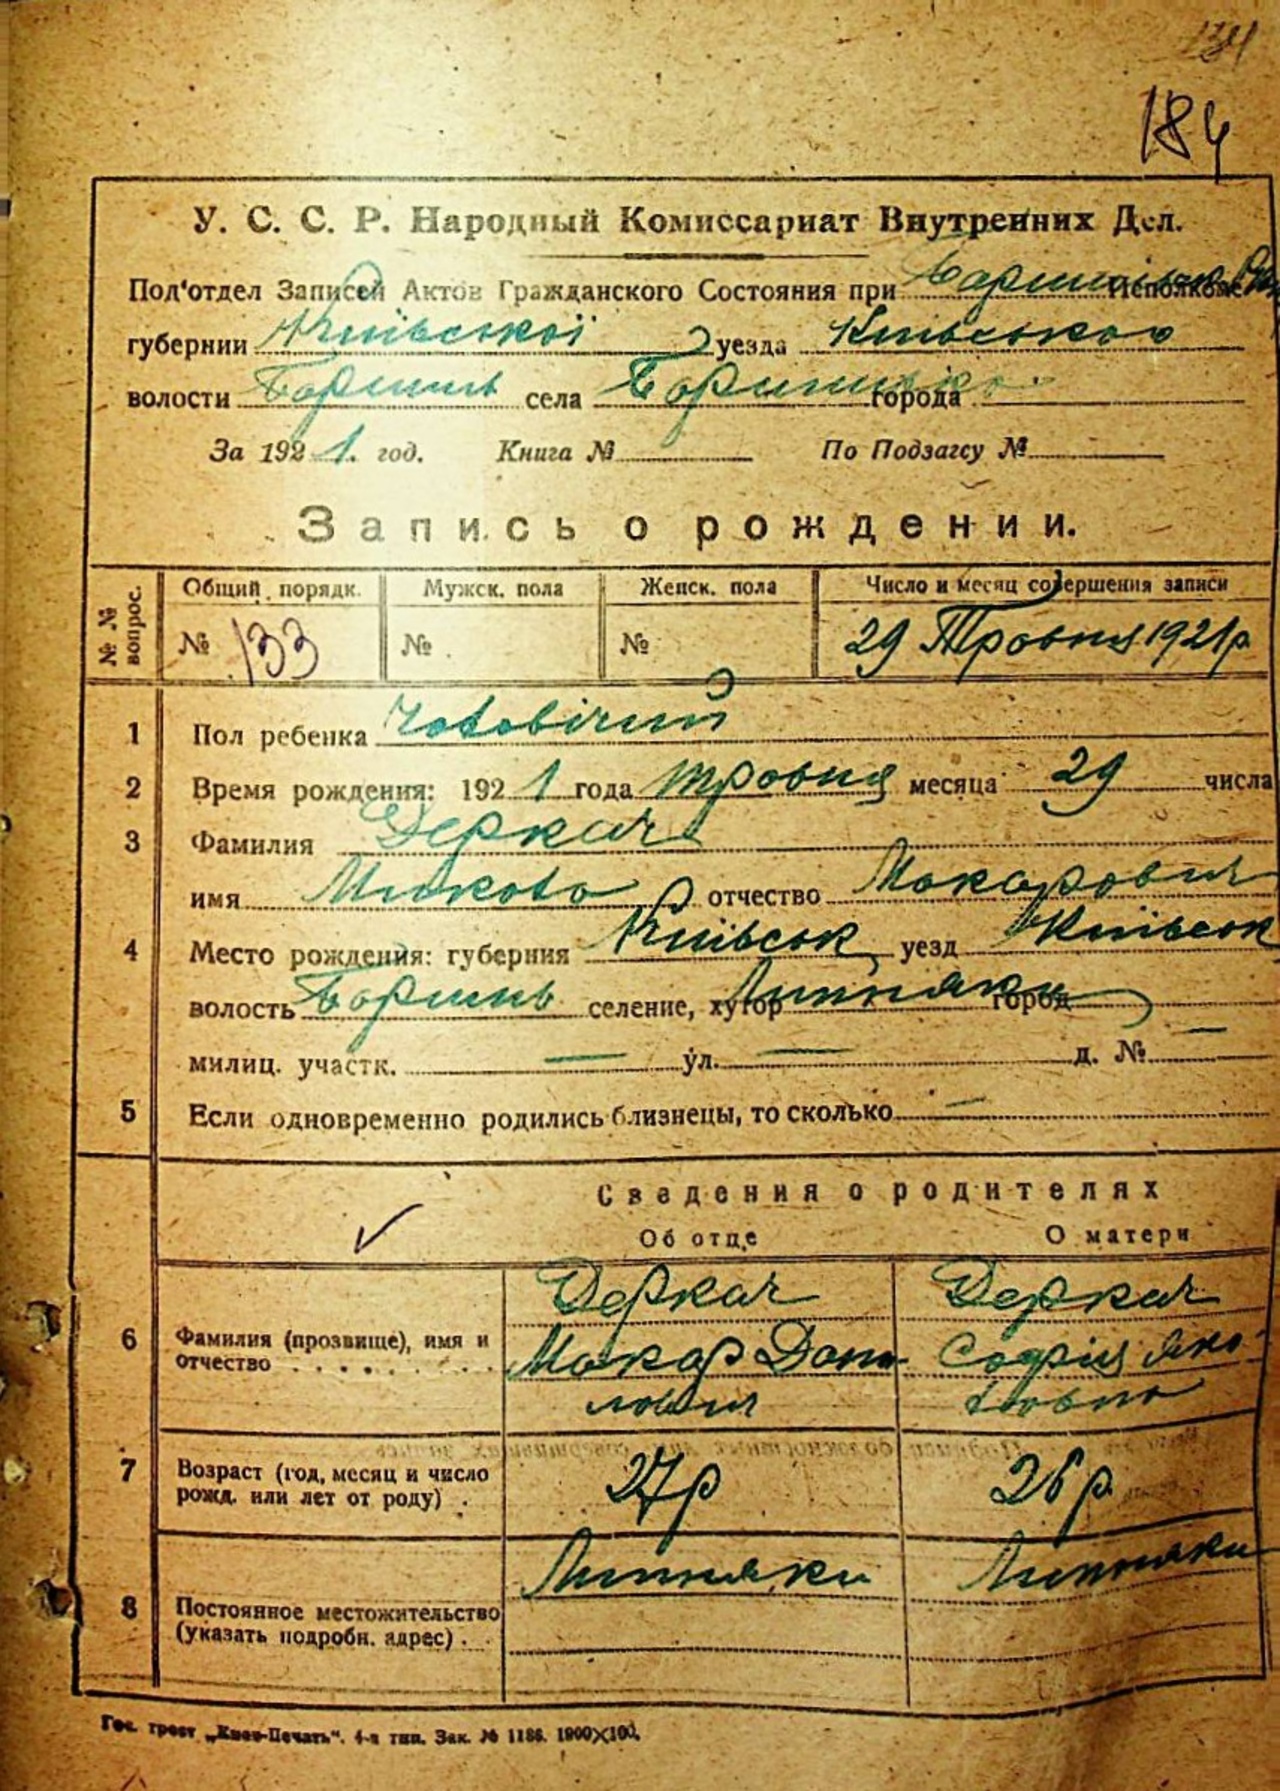 184
У. С. С. Р. Народный Комиссариат Внутренних Дел.
Под'отдел Записей Актов Гражданского Состояния при Исполкоме
губернии Київської уезда Київського
волости села города
За 1921. год. Книга № По Подзагсу №
Запись о рождении.
№ № вопрос. Общий порядк. Мужск. пола Женск. пола Число и месяц совершения записи
№ 133 № № 29 Травня 1921 р
1 Пол ребенка чоловічий
2 Время рождения: 1921 года травня месяца 29 числа
3 Фамилия Деркач
имя Микола отчество Макарович
4 Место рождения: губерния Київськ уезд Київськ
волость селение, хутор Липняки город
милиц. участк. — ул. — д. № —
5 Если одновременно родились близнецы, то сколько —
Сведения о родителях
Об отце О матери
Деркач Деркач
6 Фамилия (прозвище), имя и отчество Макар Дани- Софія Яко-
лович вовна
7 Возраст (год, месяц и число рожд. или лет от роду) . 27 р 26 р.
Липняки Липняки
8 Постоянное местожительство (указать подробн. адрес) . .
Гос. трест „Киев-Печать“. 4-я тип. Зак. № 1186. 1900X100.